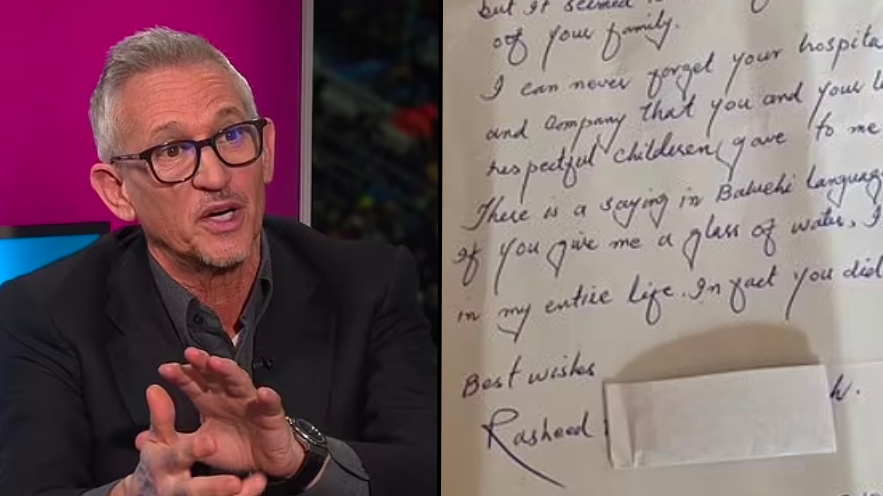 but it seemed
of your family.
I can never forget your hospita
and company that you and your
respectful childeren gave to me
There is a saying in Baluchi languag
If you give me a glass of water, I
in my entire life. In fact you did
Best wishes
Rasheed h.